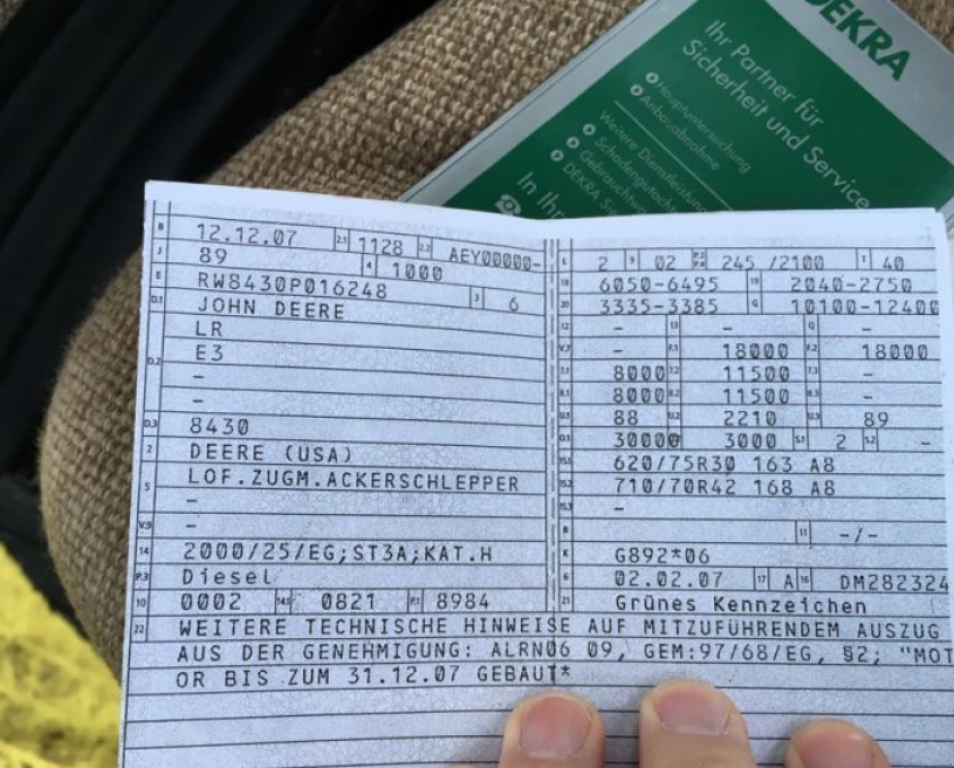 DEKRA
Ihr Partner für
Sicherheit und Service
Hauptuntersuchung
Anbauabnahme
Weitere
In Ihr
B 12.12.07 2.1 1128 2.2 AEY00000-
J 89 4 1000
E RW8430P016248 3 6
D.1 JOHN DEERE
LR
D.2 E3
-
-
D.3 8430
2 DEERE (USA)
5 LOF.ZUGM.ACKERSCHLEPPER
-
V.9 -
14 2000/25/EG;ST3A;KAT.H
P.3 Diesel
10 0002 14.1 0821 P.1 8984
L 2 9 02 P.2 P.4 245 /2100 T 40
18 6050-6495 19 2040-2750
20 3335-3385 G 10100-12400
12 - 13 - Q -
V.7 - F.1 18000 F.2 18000
7.1 8000 7.2 11500 7.3 -
8.1 8000 8.2 11500 8.3 -
U.1 88 U.2 2210 U.3 89
O.1 30000 3000 S.1 2 S.2 -
15.1 620/75R30 163 A8
15.2 710/70R42 168 A8
15.3 -
R 11 -/-
K G892*06
6 02.02.07 17 A 16 DM282324
21 Grünes Kennzeichen
22 WEITERE TECHNISCHE HINWEISE AUF MITZUFÜHRENDEM AUSZUG
AUS DER GENEHMIGUNG: ALRN06 09, GEM:97/68/EG, §2; "MOT
OR BIS ZUM 31.12.07 GEBAUT*